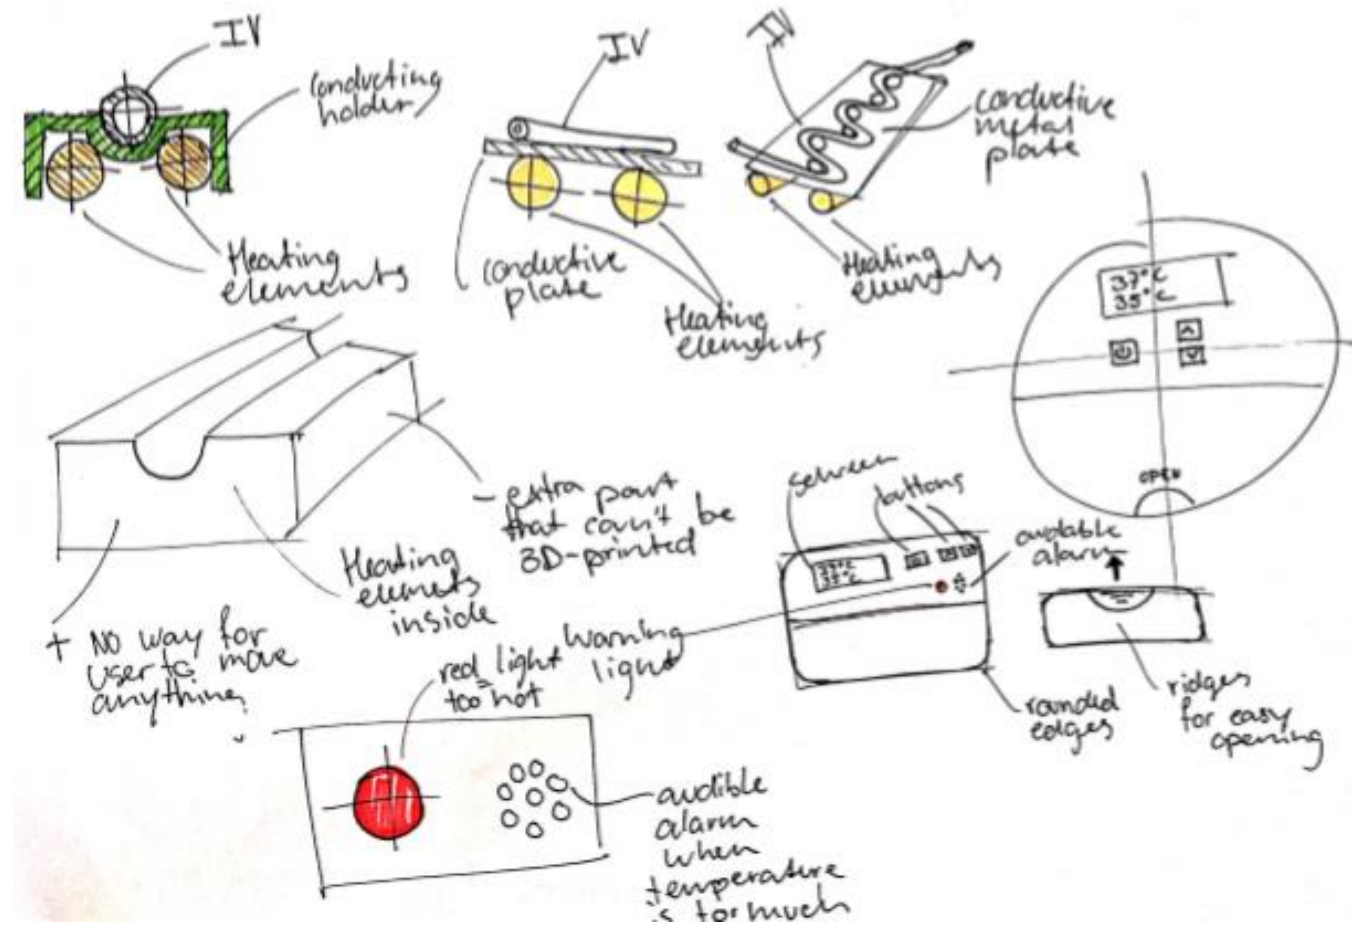 IV
conducting
holder
Heating
elements
IV
conductive
plate
Heating
elements
IV
conductive
metal
plate
Heating
elements
37°C
35°C
OPEN
- extra part
that can't be
3D-printed
Heating
elements
inside
+ NO way for
user to move
anything
screen
buttons
audable
alarm
37°C
35°C
warning
light
rounded
edges
ridges
for easy
opening
red light
too hot
audible
alarm
when
temperature
is too much